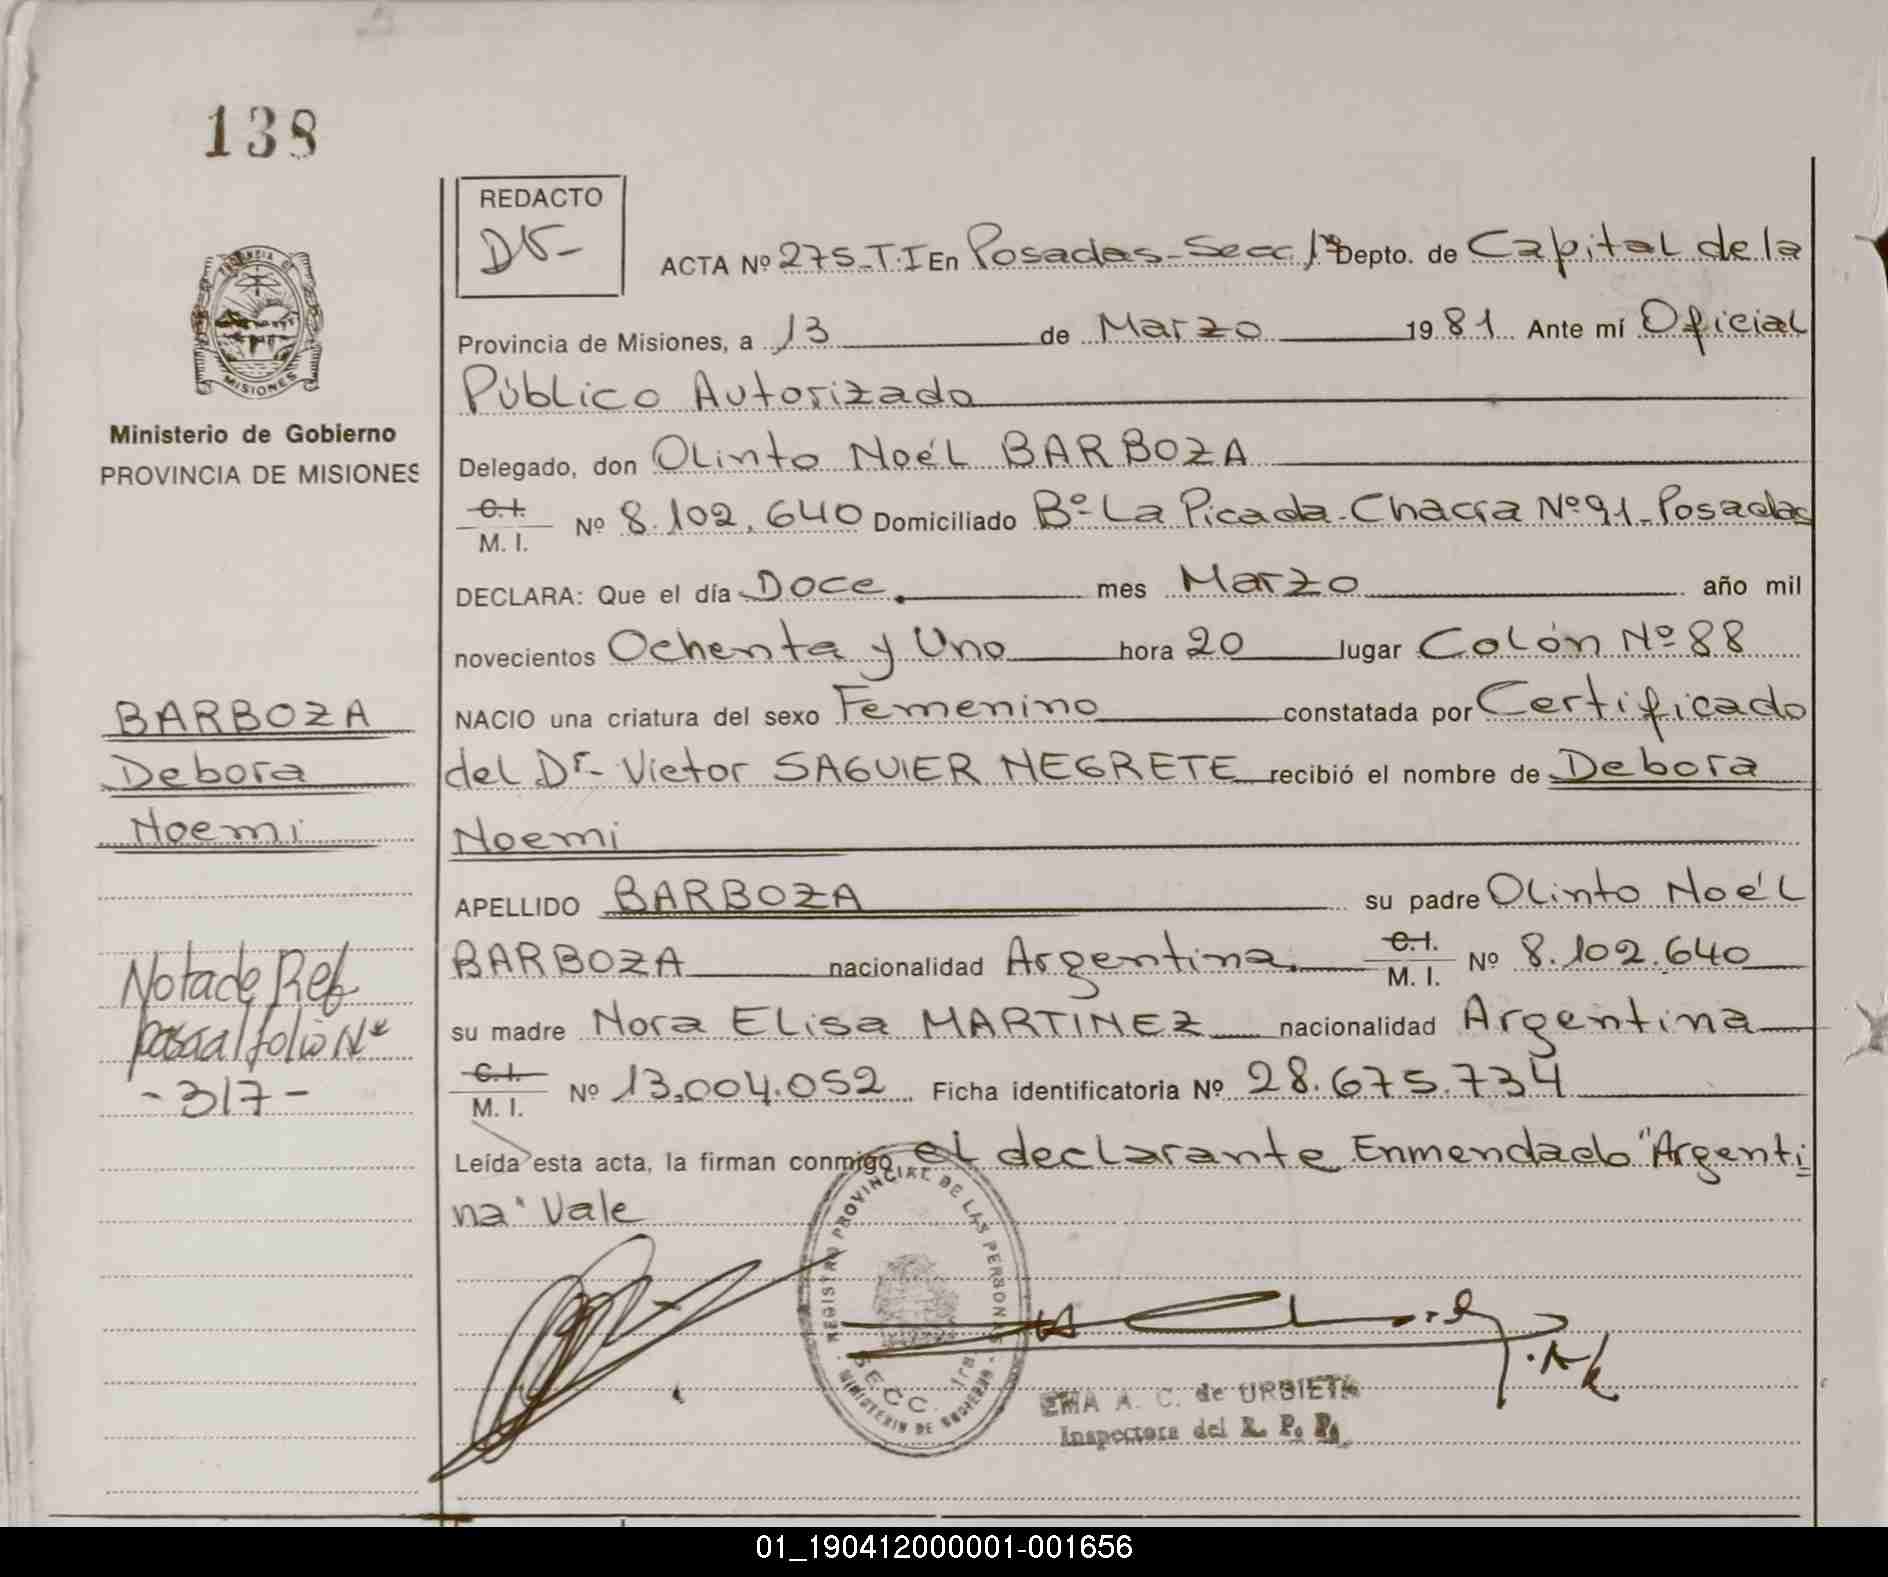 138
REDACTO
ACTA Nº 275-T.I En Posadas-Secc 1ª Depto. de Capital de la
Provincia de Misiones, a 13 de Marzo 1981 Ante mí Oficial
Público Autorizado
Delegado, don Olinto Noél BARBOZA
C.I.
M. I. Nº 8.102.640 Domiciliado Bº La Picada-Chacra Nº 91-Posadas
DECLARA: Que el día Doce mes Marzo año mil
novecientos Ochenta y Uno hora 20 lugar Colón Nº 88
NACIO una criatura del sexo Femenino constatada por Certificado
del Dr- Victor SAGUIER NEGRETE recibió el nombre de Debora
Noemi
APELLIDO BARBOZA su padre Olinto Noél
BARBOZA nacionalidad Argentina. C.I. M. I. Nº 8.102.640
su madre Nora Elisa MARTINEZ nacionalidad Argentina
C.I.
M. I. Nº 13.004.052 Ficha identificatoria Nº 28.675.734
Leída esta acta, la firman conmigo el declarante Enmendado "Argenti
na" Vale
PROVINCIA DE MISIONES
Ministerio de Gobierno
PROVINCIA DE MISIONES
BARBOZA
Debora
Noemi
Nota de Ref
pasa al folio Nº
-317-
REGISTRO PROVINCIAL DE LAS PERSONAS
SECC. 1ra.
MINISTERIO DE GOBIERNO
EMA A. C. de URBIETA
Inspectora del R. P. P.
01_190412000001-001656